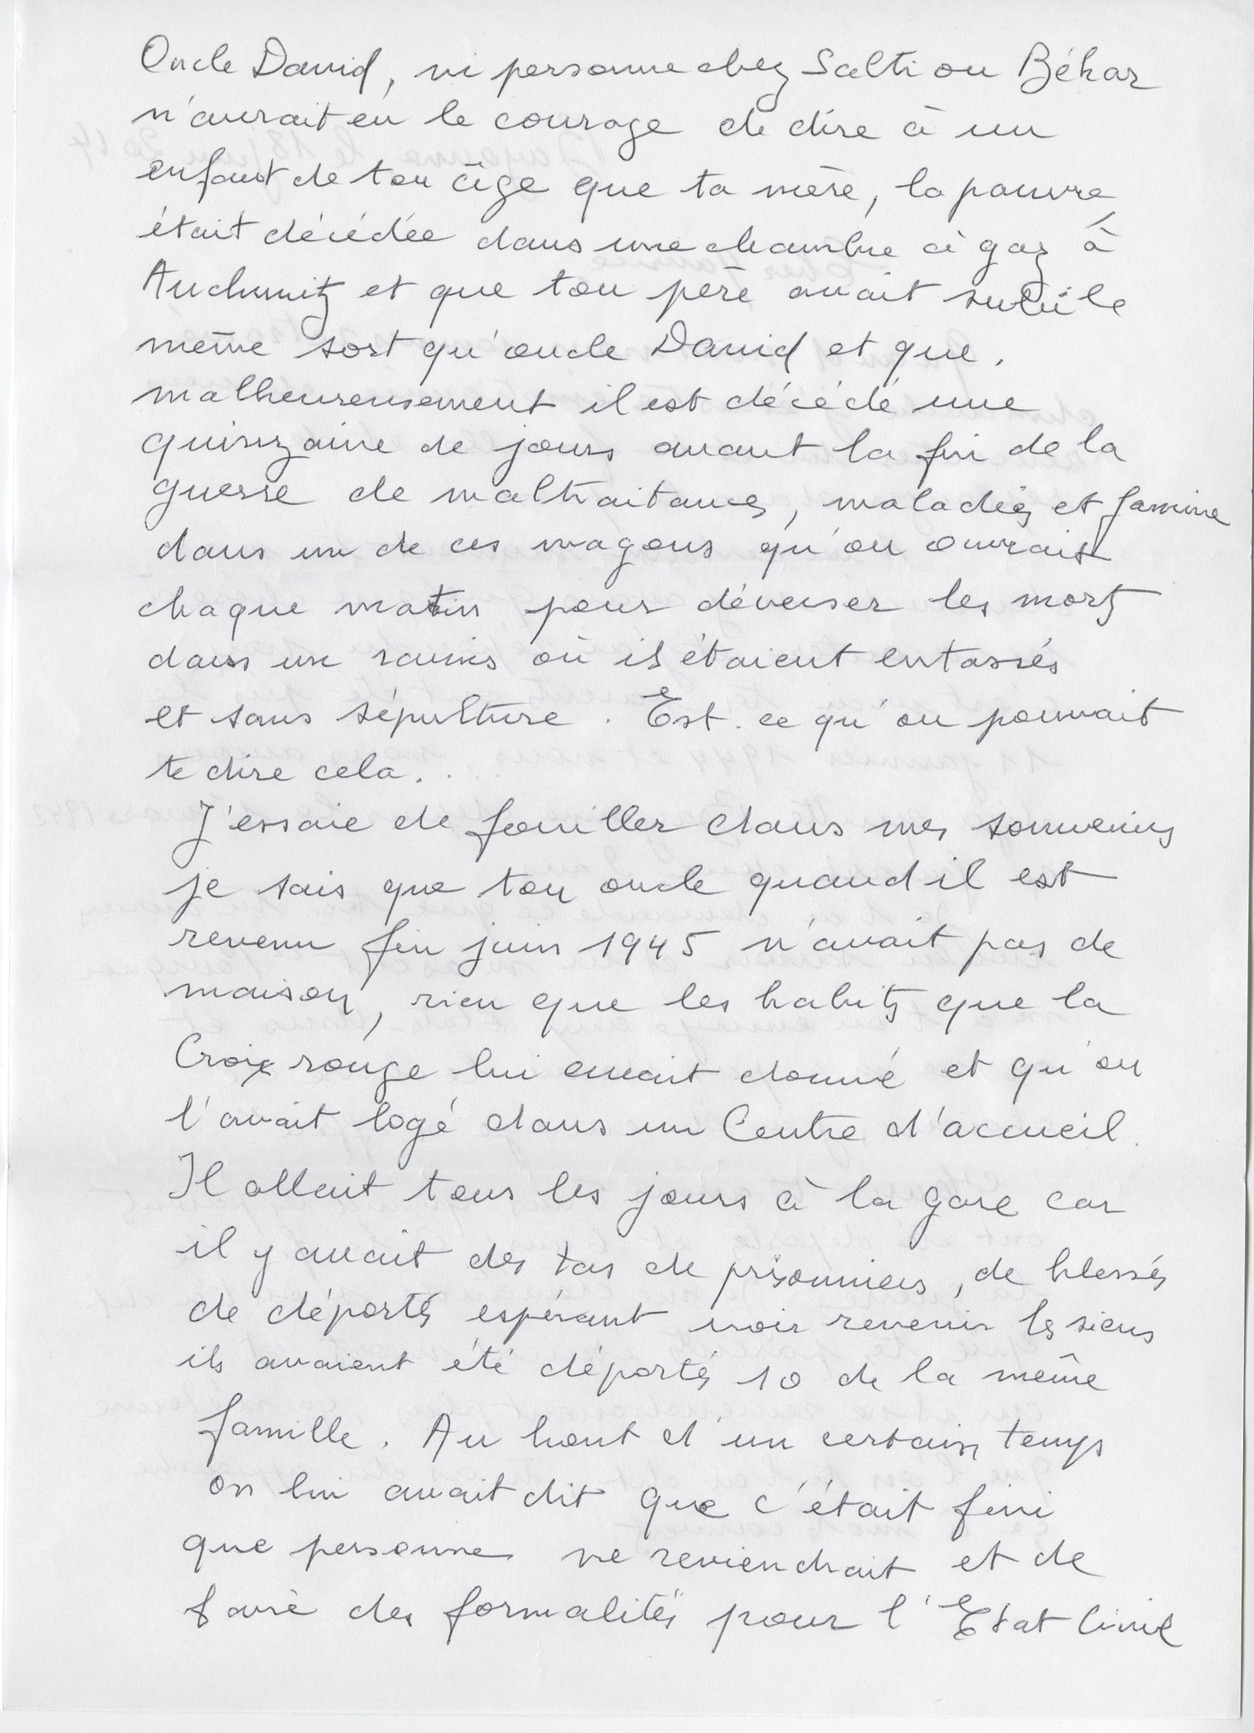 Oncle David, ni personne chez Salti ou Béhar
n'aurait eu le courage de dire à un
enfant de ton âge que ta mère, la pauvre,
était décédée dans une chambre à gaz à
Auchwitz et que ton père avait subi le
même sort qu'oncle David et que.
malheureusement il est décédé une
quinzaine de jours avant la fin de la
guerre de maltraitances, maladies et famine
dans un de ces wagons qu'on ouvrait
chaque matin pour déverser les morts
dans un ravin où ils étaient entassés
et sans sépulture. Est-ce qu'on pouvait
te dire cela...
J'essaie de fouiller dans mes souvenirs
je sais que ton oncle quand il est
revenu fin juin 1945 n'avait pas de
maison, rien que les habits que la
Croix rouge lui avait donné et qu'on
l'avait logé dans un Centre d'accueil.
Il allait tous les jours à la gare car
il y avait des tas de prisonniers, de blessés
de déportés espérant voir revenir les siens
ils avaient été déportés 10 de la même
famille. Au bout d'un certain temps
on lui avait dit que c'était fini
que personne ne reviendrait et de
faire des formalités pour l'Etat Civil